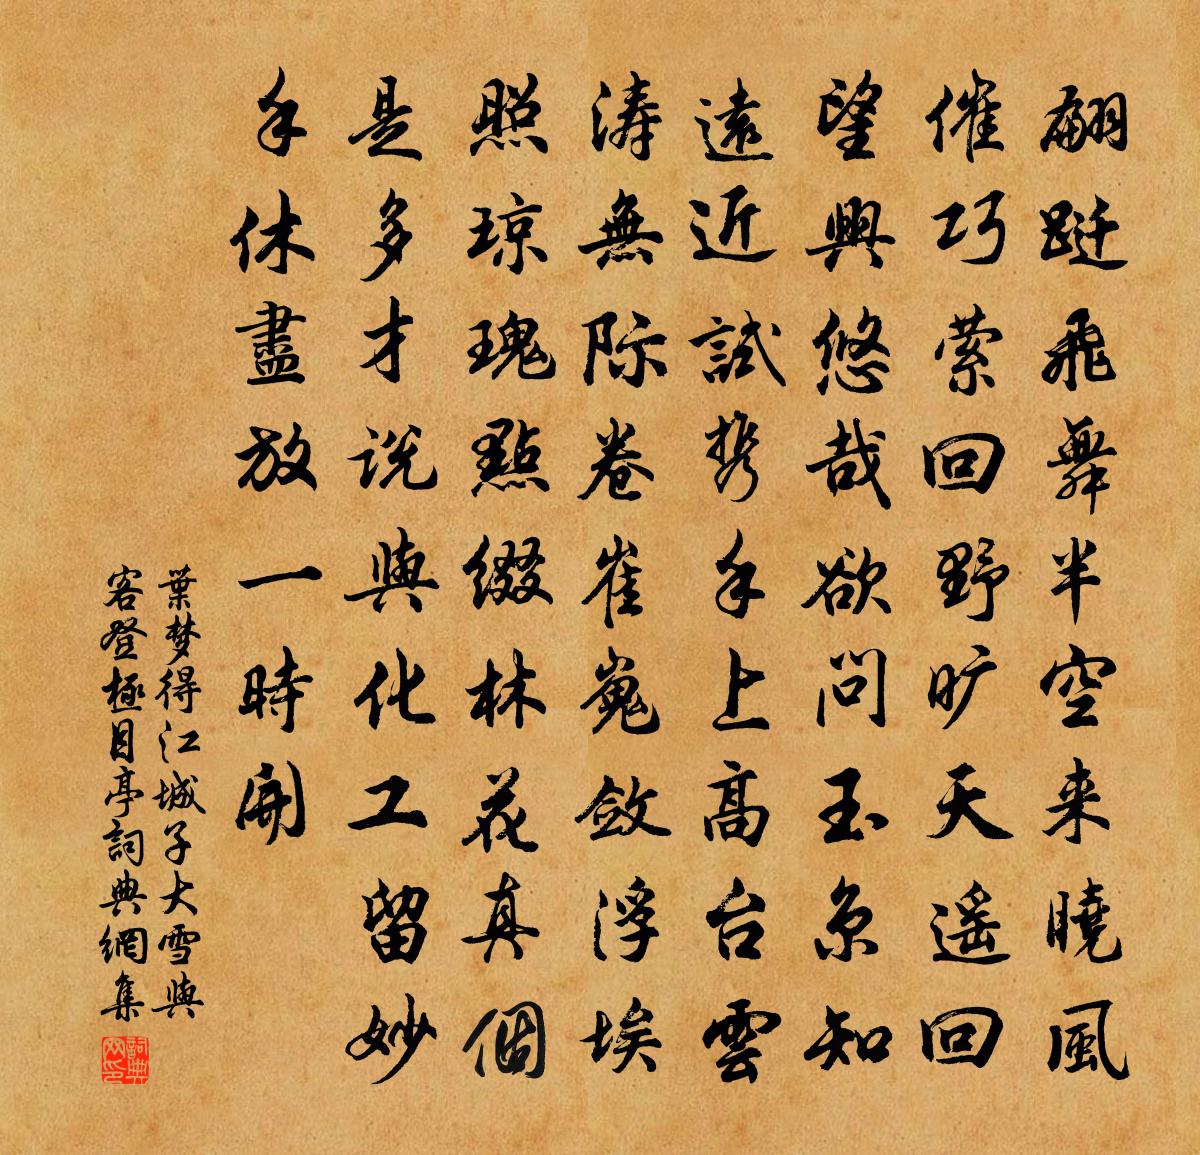 翩跹飛舞半空来曉風
催巧萦回野旷天遥回
望興悠哉欲問玉京知
遠近試携手上高台雲
涛無际卷崔嵬斂浮埃
照琼瑰點綴林花真個
是多才説與化工留妙
手休盡放一時開
葉梦得江城子大雪與
客登極目亭詞典網集
詞典
网印